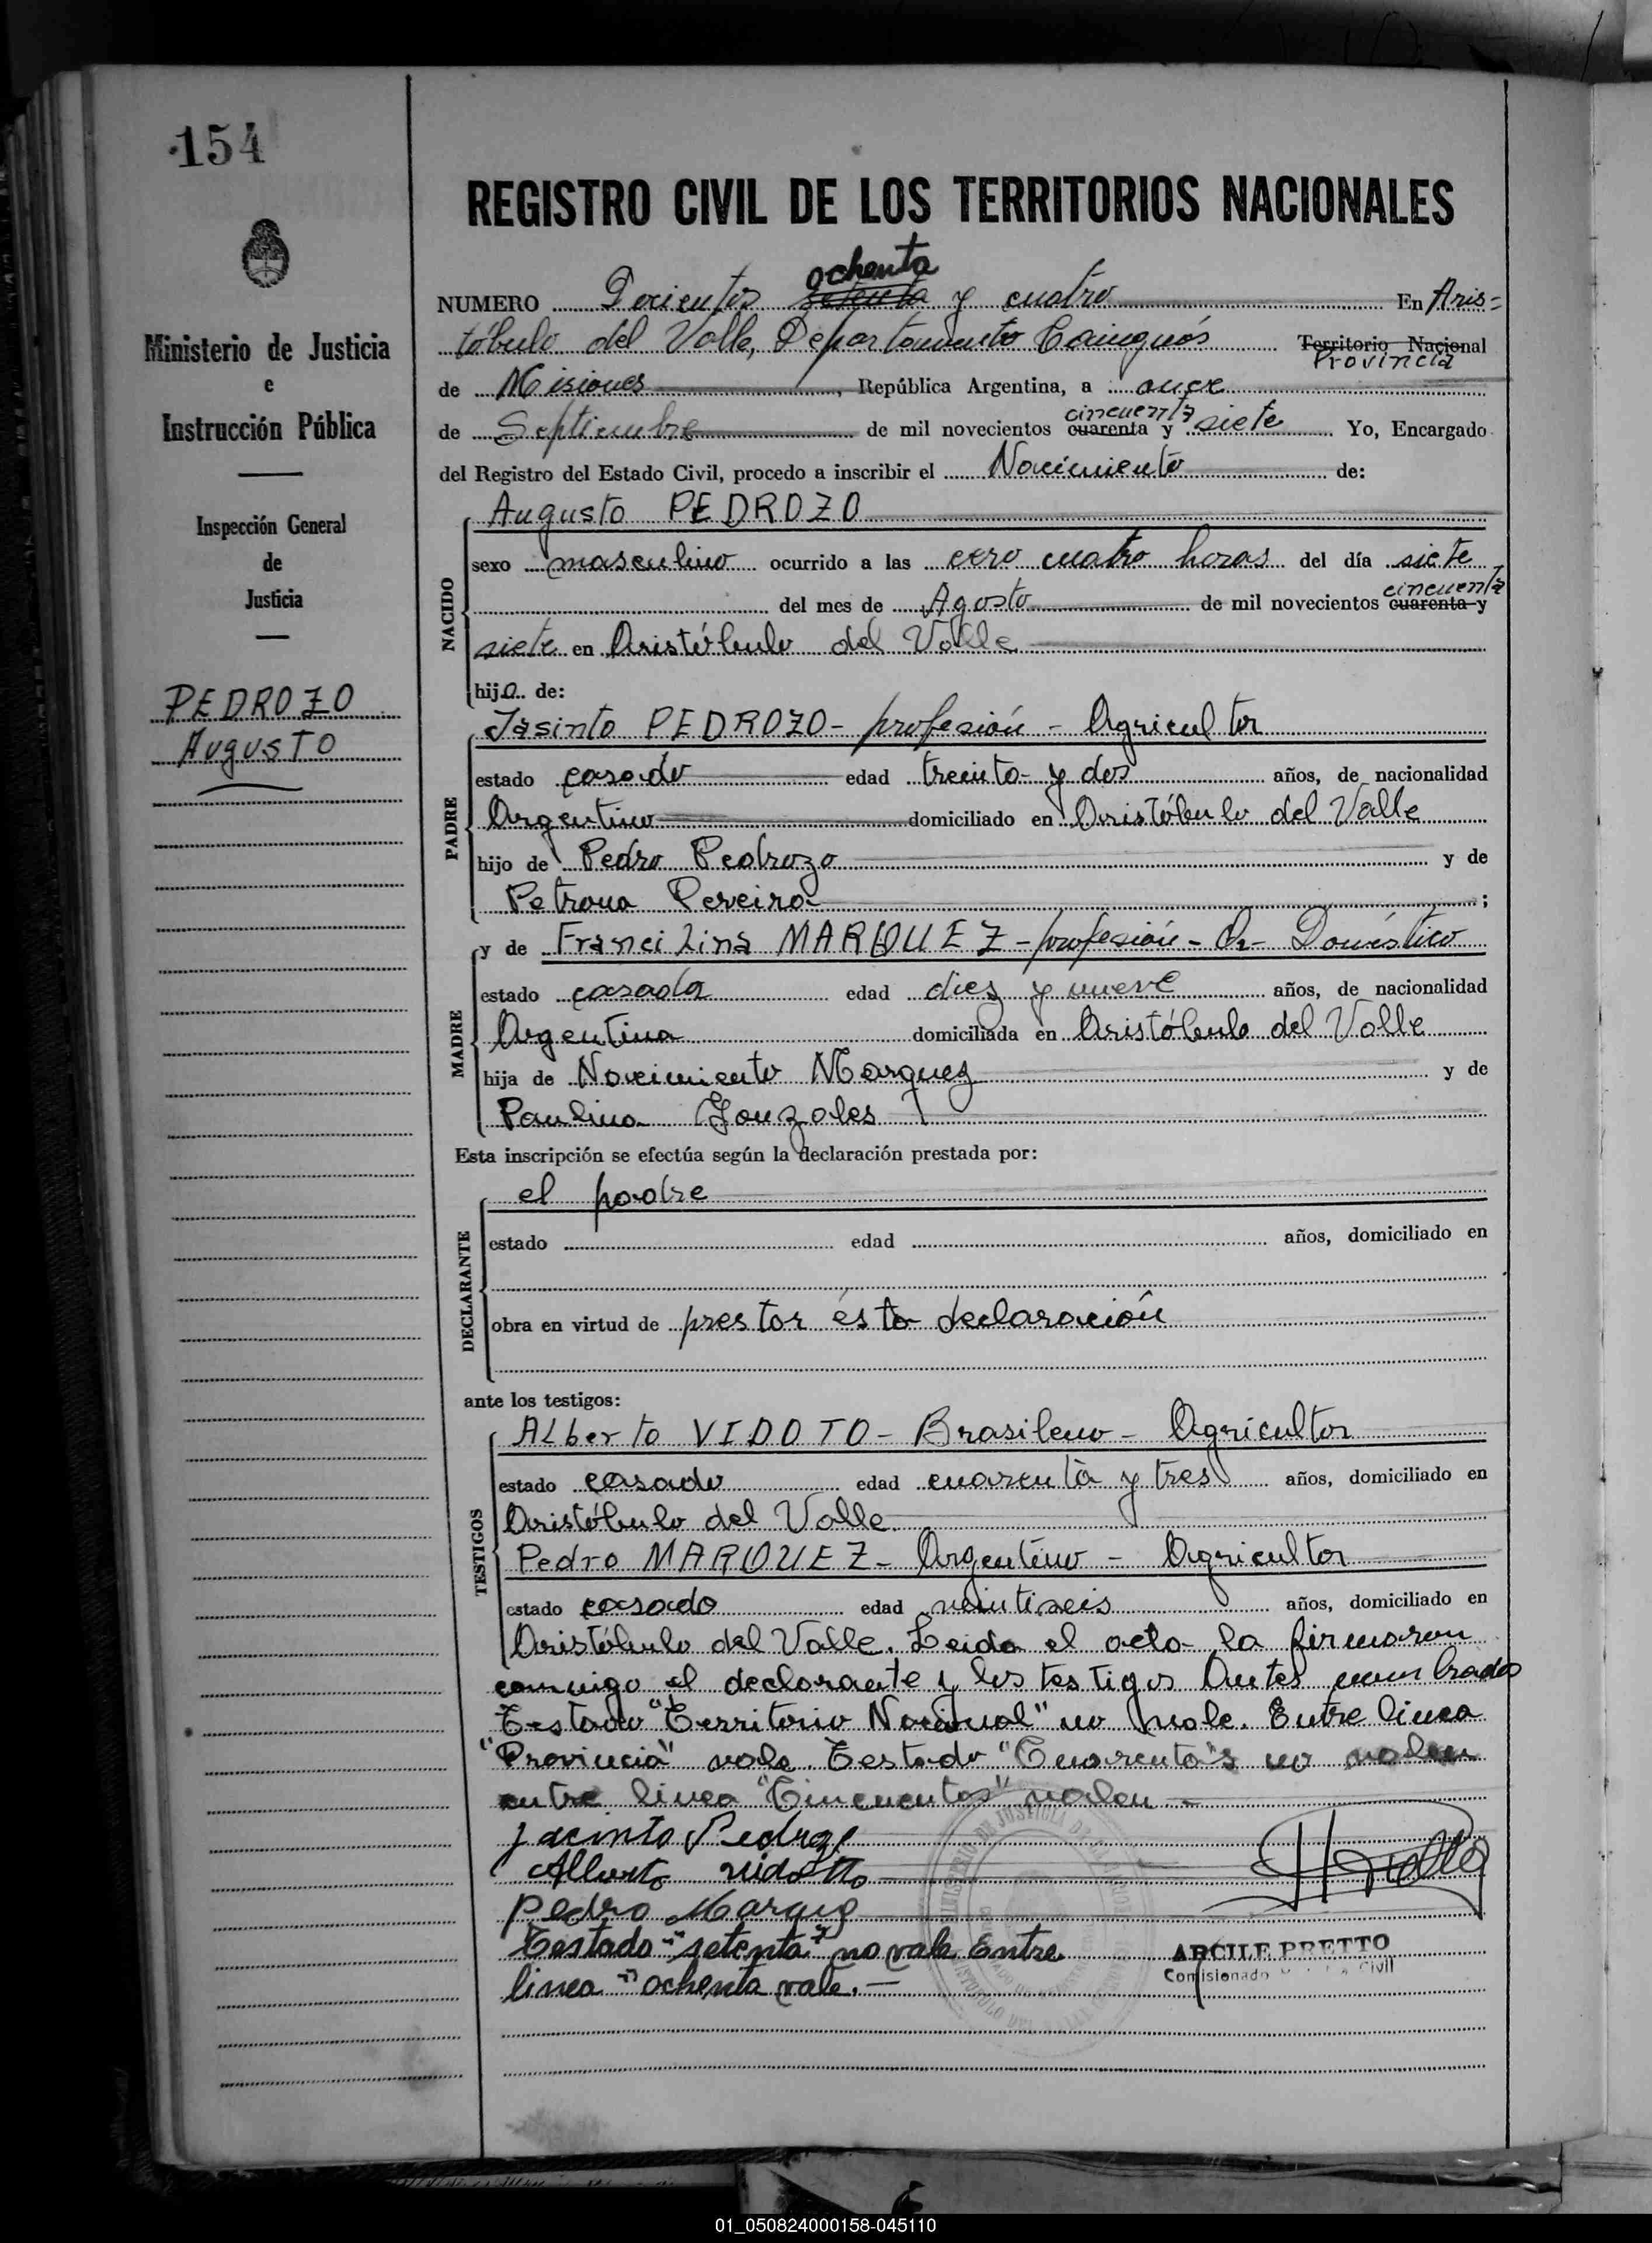 154
REGISTRO CIVIL DE LOS TERRITORIOS NACIONALES
Ministerio de Justicia
e
Instrucción Pública
Inspección General
de
Justicia
PEDROZO
AUGUSTO
ochenta
NUMERO Docientos setenta y cuatro En Aris=
tóbulo del Valle, Departamento Cainguás Territorio Nacional
Provincia
de Misiones, República Argentina, a once
de Septiembre de mil novecientos cuarenta y cincuenta siete Yo, Encargado
del Registro del Estado Civil, procedo a inscribir el Nacimiento de:
NACIDO
Augusto PEDROZO
sexo masculino ocurrido a las cero cuatro horas del día siete
del mes de Agosto de mil novecientos cuarenta y cincuenta
siete en Aristóbulo del Valle
hijo de:
PADRE
Jasinto PEDROZO - profesión - Agricultor
estado casado edad treinta y dos años, de nacionalidad
Argentino domiciliado en Aristóbulo del Valle
hijo de Pedro Pedrozo y de
Petrona Pereira ;
MADRE
y de Francilina MARQUEZ - profesión - Q. Doméstico
estado casada edad diez y nueve años, de nacionalidad
Argentina domiciliada en Aristóbulo del Valle
hija de Nacimiento Marquez y de
Paulina Gonzales
Esta inscripción se efectúa según la declaración prestada por:
DECLARANTE
el padre
estado edad años, domiciliado en
obra en virtud de prestar ésta declaración
ante los testigos:
TESTIGOS
Alberto VIDOTO - Brasileno - Agricultor
estado casado edad cuarenta y tres años, domiciliado en
Aristóbulo del Valle
Pedro MARQUEZ - Argentino - Agricultor
estado casado edad veintiseis años, domiciliado en
Aristóbulo del Valle. Leida el acta la firmaron
conmigo el declarante y los testigos Antes nombrados
Testado "Territorio Nacional" no vale. Entre linea
"Provincia" vale. Testado "Cuarenta"s no valen
entre linea "Cincuentas" valen -
Jacinto Pedrozo
Alberto Vidotto
Pedro Marquez
Testado "setenta" no vale Entre
linea "ochenta vale. -
ARCILE PRETTO
Comisionado Civil
01_050824000158-045110